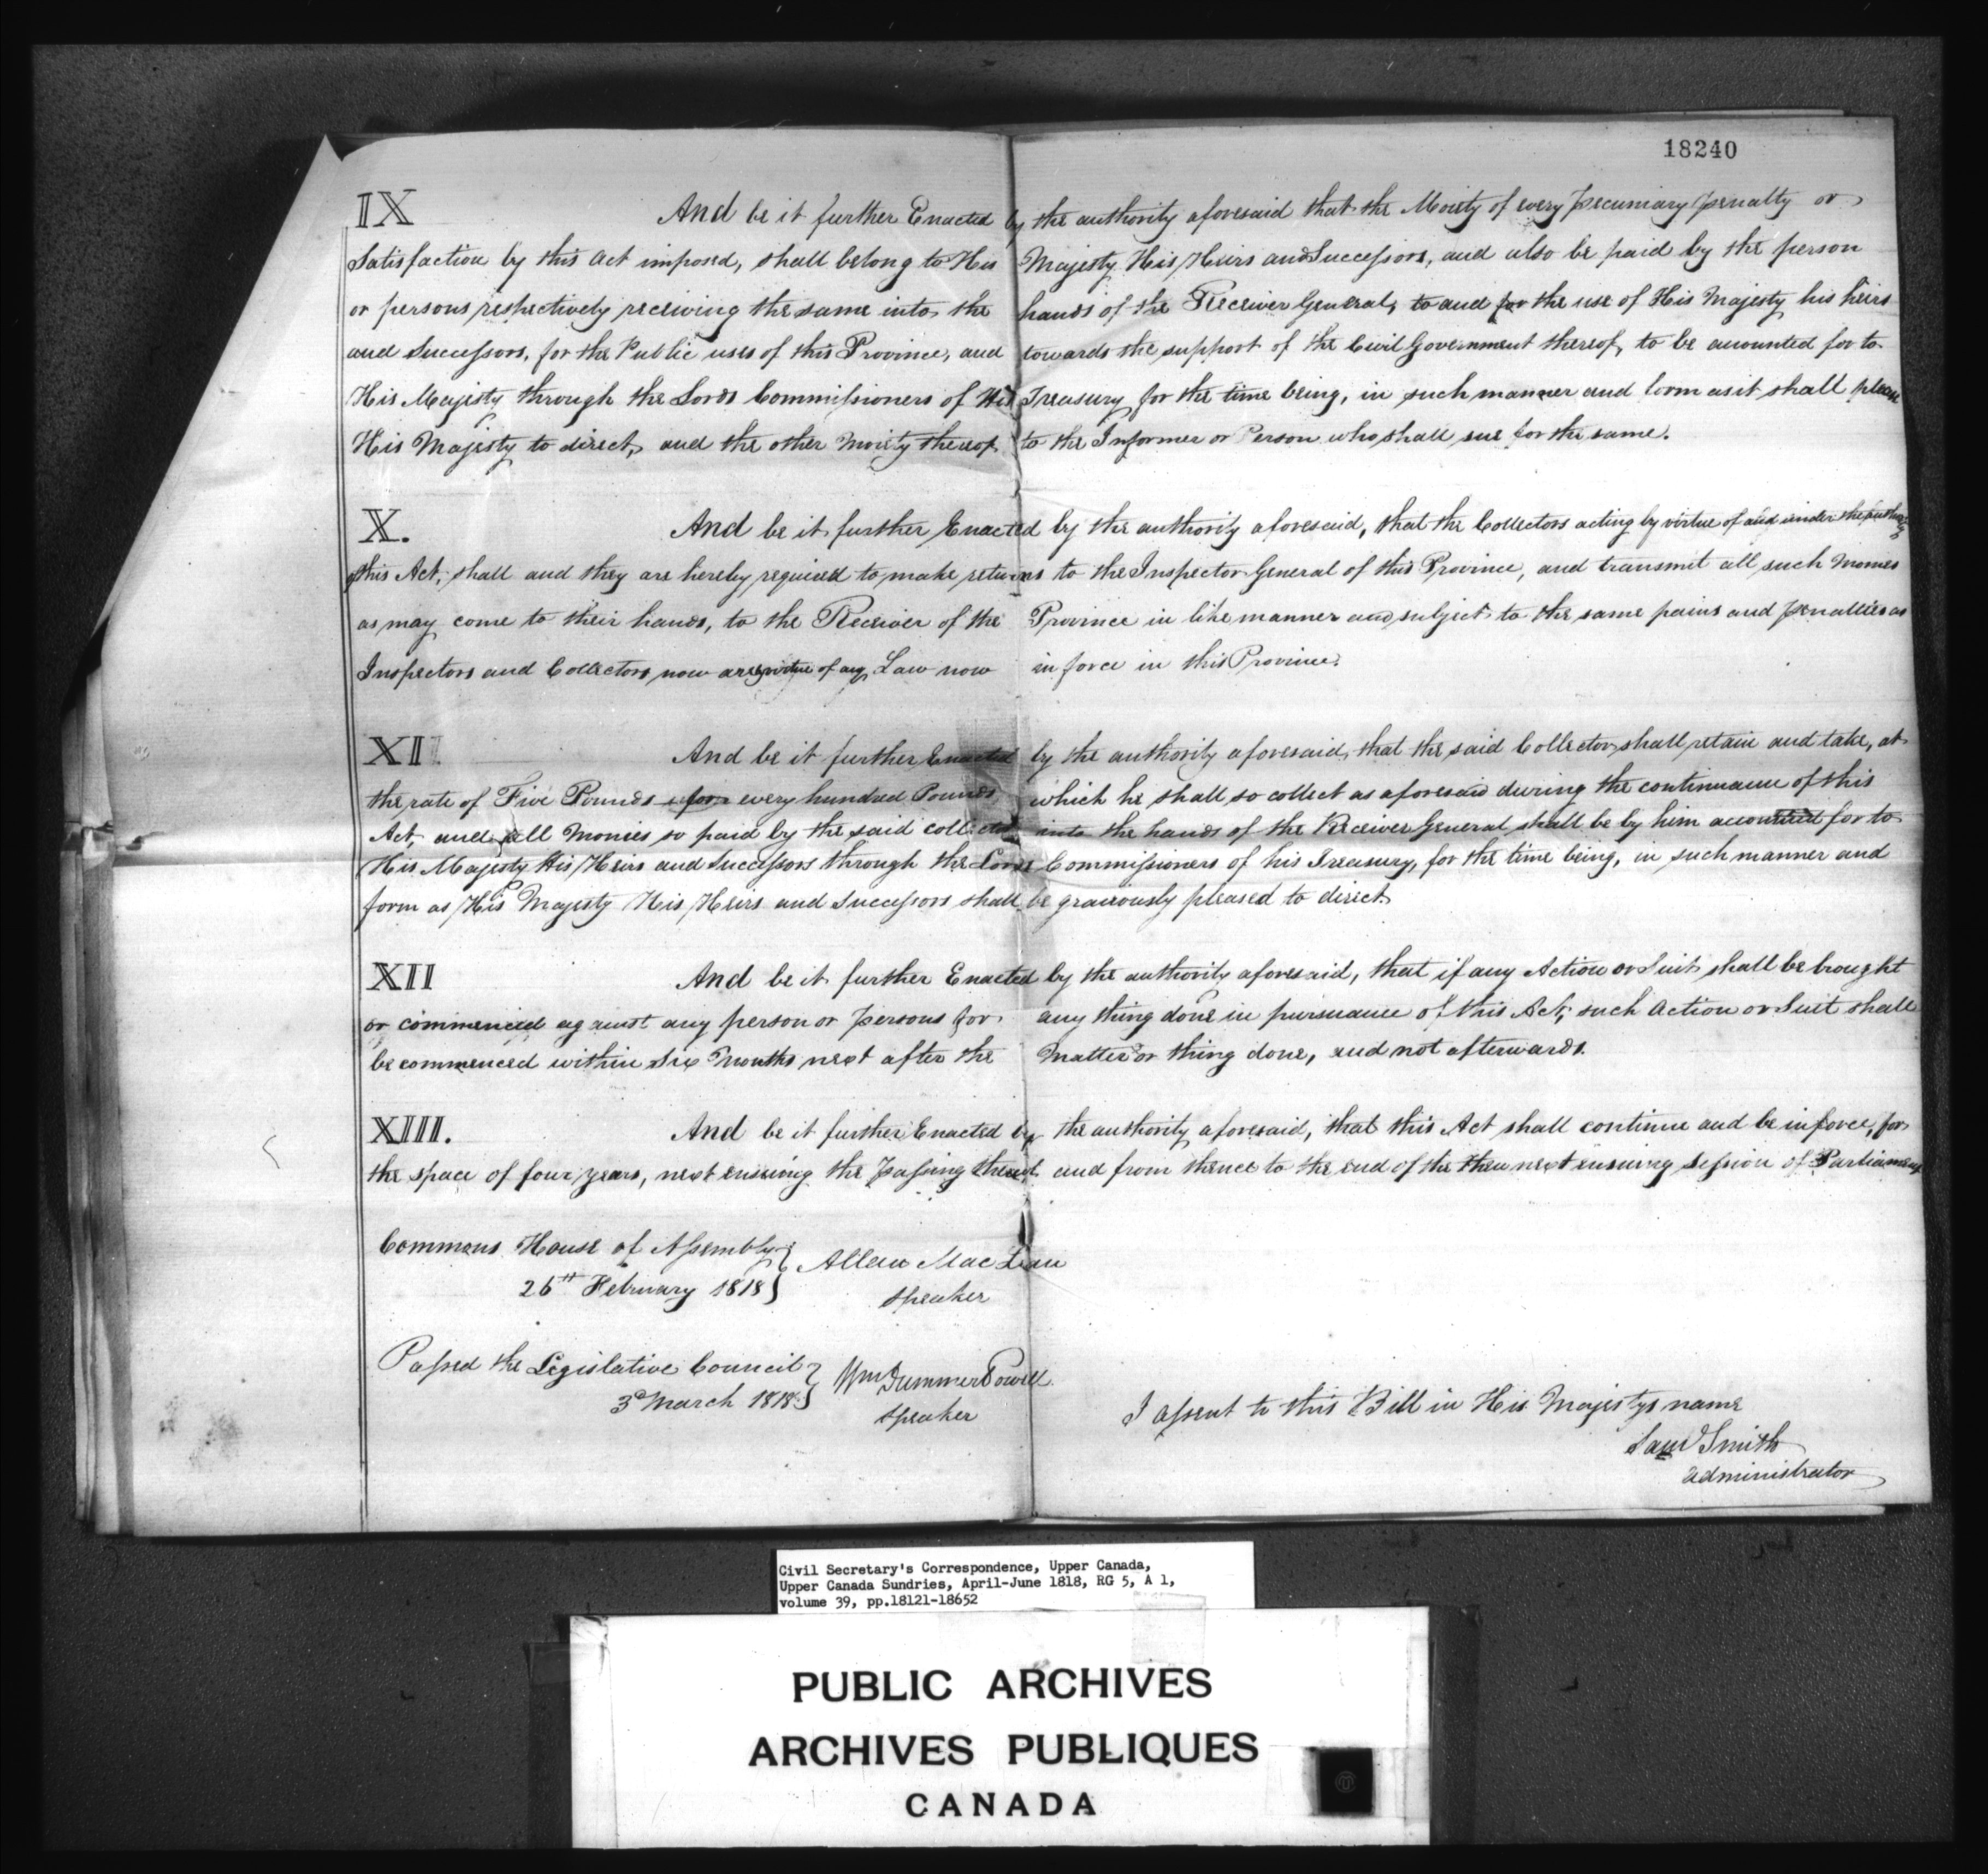 18240
IX And be it further Enacted by the authority aforesaid that the Moiety of every pecuniary penalty or
Satisfaction by this Act imposed, shall belong to His Majesty His Heirs and Successors, and also be paid by the person
or persons respectively receiving the same into the hands of the Receiver General, to and for the use of His Majesty his heirs
and Successors, for the Public uses of this Province, and towards the support of the Civil Government thereof, to be accounted for to
His Majesty through the Lords Commissioners of His Treasury for the time being, in such manner and form as it shall please
His Majesty to direct, and the other Moiety thereof to the Informer or Person who shall sue for the same.
X. And be it further Enacted by the authority aforesaid, that the Collectors acting by virtue of and under the authority
of this Act, shall and they are hereby required to make returns to the Inspector General of this Province, and transmit all such Monies
as may come to their hands, to the Receiver of the Province in like manner and subject to the same pains and penalties as
Inspectors and Collectors now are by virtue of any Law now in force in this Province.
XI And be it further Enacted by the authority aforesaid, that the said Collector shall retain and take, at
the rate of Five Pounds upon every hundred Pounds which he shall so collect as aforesaid during the continuance of this
Act, and all Monies so paid by the said collector into the hands of the Receiver General shall be by him accounted for to
His Majesty His Heirs and Successors through the Lords Commissioners of his Treasury, for the time being, in such manner and
form as His Majesty His Heirs and Successors shall be graciously pleased to direct.
XII And be it further Enacted by the authority aforesaid, that if any Action or Suit shall be brought
or commenced against any person or persons for any thing done in pursuance of this Act, such Action or Suit shall
be commenced within Six Months next after the Matter or thing done, and not afterwards.
XIII. And be it further Enacted by the authority aforesaid, that this Act shall continue and be in force, for
the space of four years, next ensuing the passing thereof and from thence to the end of the then next ensuing Session of Parliament
Commons House of Assembly
26th February 1818
Allan MacLean
Speaker
Passed the Legislative Council
3d March 1818
Wm Dummer Powell
Speaker
I assent to this Bill in His Majestys name
Saml Smith
Administrator
Civil Secretary's Correspondence, Upper Canada,
Upper Canada Sundries, April-June 1818, RG 5, A 1,
volume 39, pp.18121-18652
PUBLIC ARCHIVES
ARCHIVES PUBLIQUES
CANADA